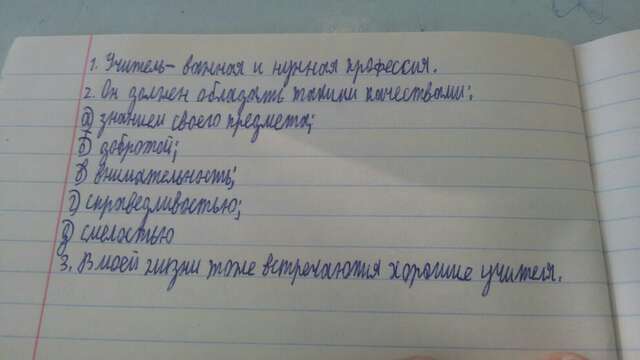 1. Учитель- важная и нужная профессия.
2. Он должен обладать такими качествами:
а) знанием своего предмета;
б) добротой;
в) внимательность;
г) справедливостью;
д) смелостью
3. В моей жизни тоже встречаются хорошие учителя.